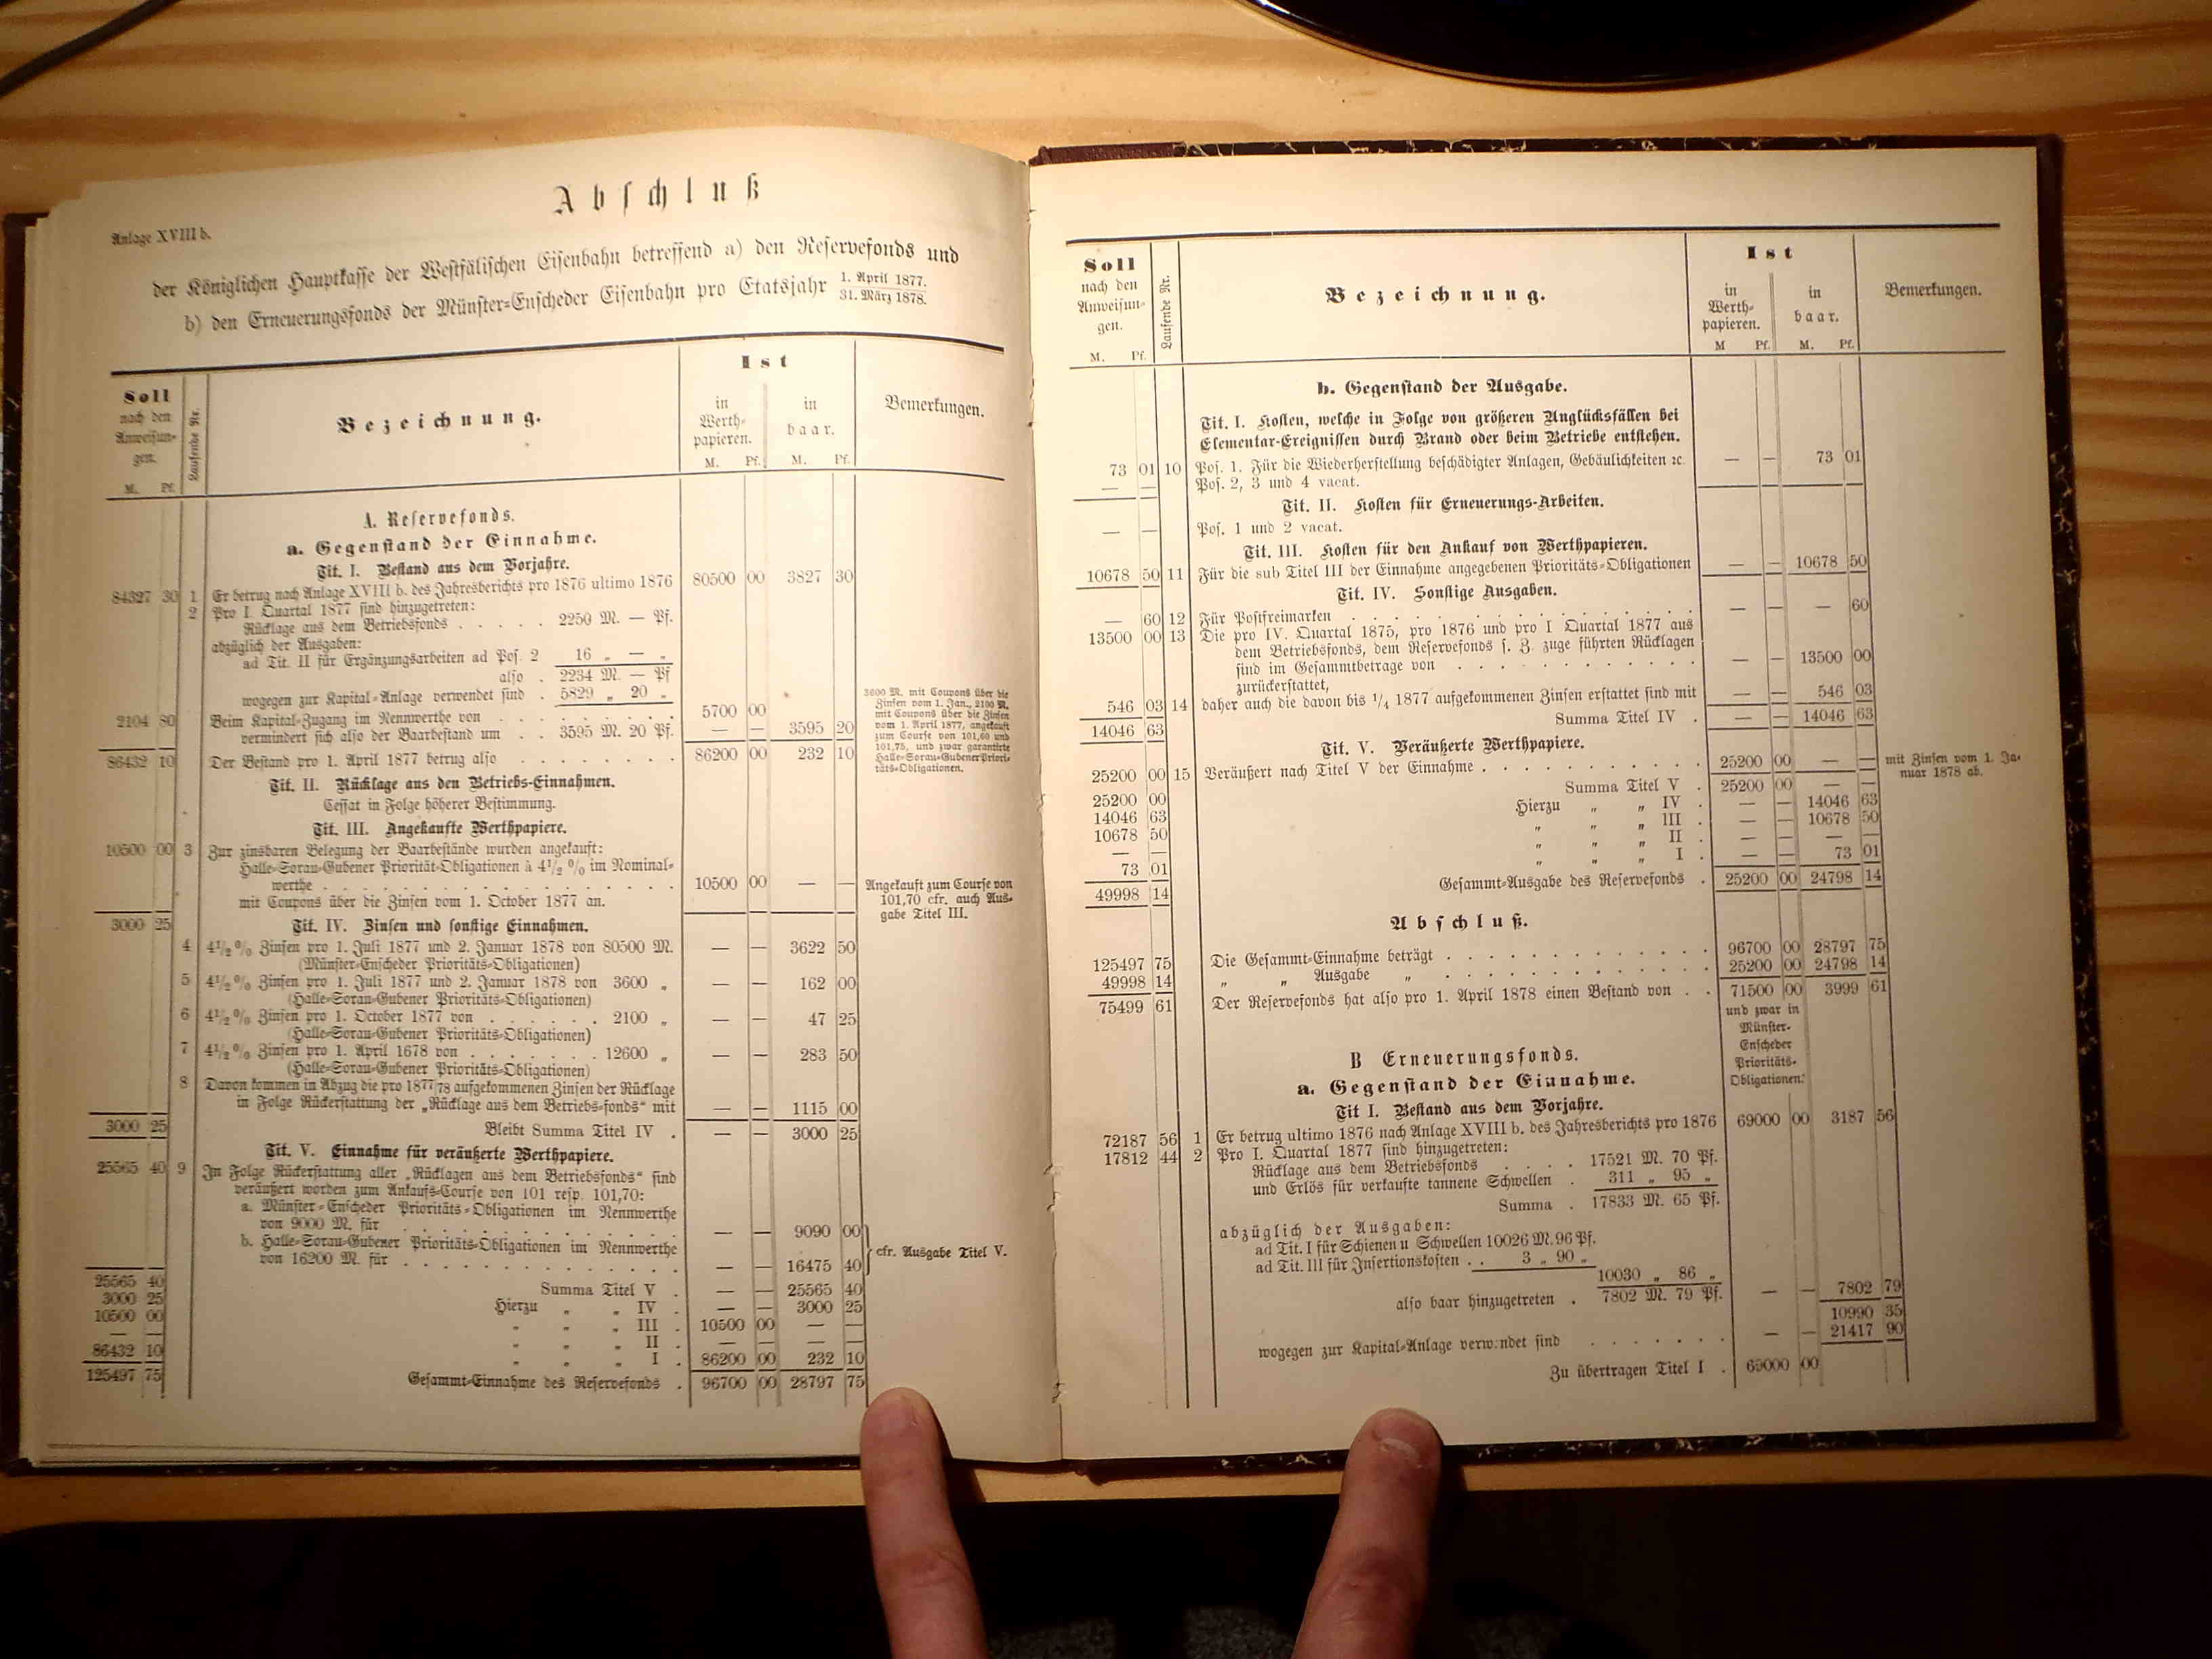 Abschluß
Anlage XVIII b.
der Königlichen Hauptkasse der Westfälischen Eisenbahn betreffend a) den Reservefonds und
b) den Erneuerungsfonds der Münster-Enscheder Eisenbahn pro Etatsjahr 1. April 1877. / 31. März 1878.
Soll nach den Anweisungen. M. Pf.
Laufende Nr.
Bezeichnung.
Ist
in Werthpapieren. M. Pf.
in baar. M. Pf.
Bemerkungen.
A. Reservefonds.
a. Gegenstand der Einnahme.
Tit. I. Bestand aus dem Vorjahre.
84327 30 1 Er betrug nach Anlage XVIII b. des Jahresberichts pro 1876 ultimo 1876 80500 00 3827 30
2 Pro I. Quartal 1877 sind hinzugetreten:
Rücklage aus dem Betriebsfonds . . . . . 2250 M. — Pf.
abzüglich der Ausgaben:
ad Tit. II für Ergänzungsarbeiten ad Pos. 2 16 „ — „
also . 2234 M. — Pf
wogegen zur Kapital-Anlage verwendet sind . 5829 „ 20 „
2104 80 Beim Kapital-Zugang im Nennwerthe von . . . . . . . 5700 00
vermindert sich also der Baarbestand um . . 3595 M. 20 Pf. — — 3595 20
3600 M. mit Coupons über die
Zinsen vom 1. Jan., 2100 M.
mit Coupons über die Zinsen
vom 1. April 1877, angekauft
zum Course von 101,60 und
101,75, und zwar garantirte
Halle-Sorau-Gubener Priori-
täts-Obligationen.
86432 10 Der Bestand pro 1. April 1877 betrug also . . . . . . . 86200 00 232 10
Tit. II. Rücklage aus den Betriebs-Einnahmen.
Cessat in Folge höherer Bestimmung.
Tit. III. Angekaufte Werthpapiere.
10500 00 3 Zur zinsbaren Belegung der Baarbestände wurden angekauft:
Halle-Sorau-Gubener Priorität-Obligationen à 4½ % im Nominal-
werthe . . . . . . . . . . . . . . . . 10500 00 — —
mit Coupons über die Zinsen vom 1. October 1877 an.
Angekauft zum Course von
101,70 cfr. auch Aus-
gabe Titel III.
3000 25 Tit. IV. Zinsen und sonstige Einnahmen.
4 4½ % Zinsen pro 1. Juli 1877 und 2. Januar 1878 von 80500 M. — — 3622 50
(Münster-Enscheder Prioritäts-Obligationen)
5 4½ % Zinsen pro 1. Juli 1877 und 2. Januar 1878 von 3600 „ — — 162 00
(Halle-Sorau-Gubener Prioritäts-Obligationen)
6 4½ % Zinsen pro 1. October 1877 von . . . . . . 2100 „ — — 47 25
(Halle-Sorau-Gubener Prioritäts-Obligationen)
7 4½ % Zinsen pro 1. April 1678 von . . . . . . . 12600 „ — — 283 50
(Halle-Sorau-Gubener Prioritäts-Obligationen)
8 Davon kommen in Abzug die pro 1877/78 aufgekommenen Zinsen der Rücklage
in Folge Rückerstattung der „Rücklage aus dem Betriebs-fonds“ mit — — 1115 00
3000 25 Bleibt Summa Titel IV . — — 3000 25
Tit. V. Einnahme für veräußerte Werthpapiere.
25565 40 9 In Folge Rückerstattung aller „Rücklagen aus dem Betriebsfonds“ sind
veräußert worden zum Ankaufs-Course von 101 resp. 101,70:
a. Münster-Enscheder Prioritäts-Obligationen im Nennwerthe
von 9000 M. für . . . . . . . . . . . . — — 9090 00
b. Halle-Sorau-Gubener Prioritäts-Obligationen im Nennwerthe
von 16200 M. für . . . . . . . . . . . . — — 16475 40
cfr. Ausgabe Titel V.
25565 40 Summa Titel V . — — 25565 40
3000 25 Hierzu „ „ IV . — — 3000 25
10500 00 „ „ „ III . 10500 00 — —
— — „ „ „ II . — — — —
86432 10 „ „ „ I . 86200 00 232 10
125497 75 Gesammt-Einnahme des Reservefonds . 96700 00 28797 75
Soll nach den Anweisungen. M. Pf.
Laufende Nr.
Bezeichnung.
Ist
in Werthpapieren. M Pf.
in baar. M. Pf.
Bemerkungen.
b. Gegenstand der Ausgabe.
Tit. I. Kosten, welche in Folge von größeren Unglücksfällen bei
Elementar-Ereignissen durch Brand oder beim Betriebe entstehen.
73 01 10 Pos. 1. Für die Wiederherstellung beschädigter Anlagen, Gebäulichkeiten ꝛc. — — 73 01
— — Pos. 2, 3 und 4 vacat.
Tit. II. Kosten für Erneuerungs-Arbeiten.
— — Pos. 1 und 2 vacat.
Tit. III. Kosten für den Ankauf von Werthpapieren.
10678 50 11 Für die sub Titel III der Einnahme angegebenen Prioritäts-Obligationen — — 10678 50
Tit. IV. Sonstige Ausgaben.
— 60 12 Für Postfreimarken . . . . . . . . . . . . — — — 60
13500 00 13 Die pro IV. Quartal 1875, pro 1876 und pro I Quartal 1877 aus
dem Betriebsfonds, dem Reservefonds s. Z. zuge führten Rücklagen
sind im Gesammtbetrage von . . . . . . . . . — — 13500 00
zurückerstattet,
546 03 14 daher auch die davon bis 1/4 1877 aufgekommenen Zinsen erstattet sind mit — — 546 03
14046 63 Summa Titel IV . — — 14046 63
Tit. V. Veräußerte Werthpapiere.
25200 00 15 Veräußert nach Titel V der Einnahme . . . . . . . . . 25200 00 — — mit Zinsen vom 1. Ja-
nuar 1878 ab.
25200 00 Summa Titel V . 25200 00 — —
14046 63 Hierzu „ „ IV . — — 14046 63
10678 50 „ „ „ III . — — 10678 50
— — „ „ „ II . — — — —
73 01 „ „ „ I . — — 73 01
49998 14 Gesammt-Ausgabe des Reservefonds . 25200 00 24798 14
Abschluß.
125497 75 Die Gesammt-Einnahme beträgt . . . . . . . . . . . 96700 00 28797 75
49998 14 „ „ Ausgabe „ . . . . . . . . . . . 25200 00 24798 14
75499 61 Der Reservefonds hat also pro 1. April 1878 einen Bestand von . . 71500 00 3999 61
und zwar in
Münster-
Enscheder
Prioritäts-
Obligationen.
B Erneuerungsfonds.
a. Gegenstand der Einnahme.
Tit I. Bestand aus dem Vorjahre.
72187 56 1 Er betrug ultimo 1876 nach Anlage XVIII b. des Jahresberichts pro 1876 69000 00 3187 56
17812 44 2 Pro I. Quartal 1877 sind hinzugetreten:
Rücklage aus dem Betriebsfonds . . . . 17521 M. 70 Pf.
und Erlös für verkaufte tannene Schwellen . 311 „ 95 „
Summa . 17833 M. 65 Pf.
abzüglich der Ausgaben:
ad Tit. I für Schienen u Schwellen 10026 M. 96 Pf.
ad Tit. III für Insertionskosten . . 3 „ 90 „
10030 „ 86 „
also baar hinzugetreten . 7802 M. 79 Pf. — — 7802 79
10990 35
wogegen zur Kapital-Anlage verwendet sind . . . . . . — — 21417 90
Zu übertragen Titel I . 69000 00